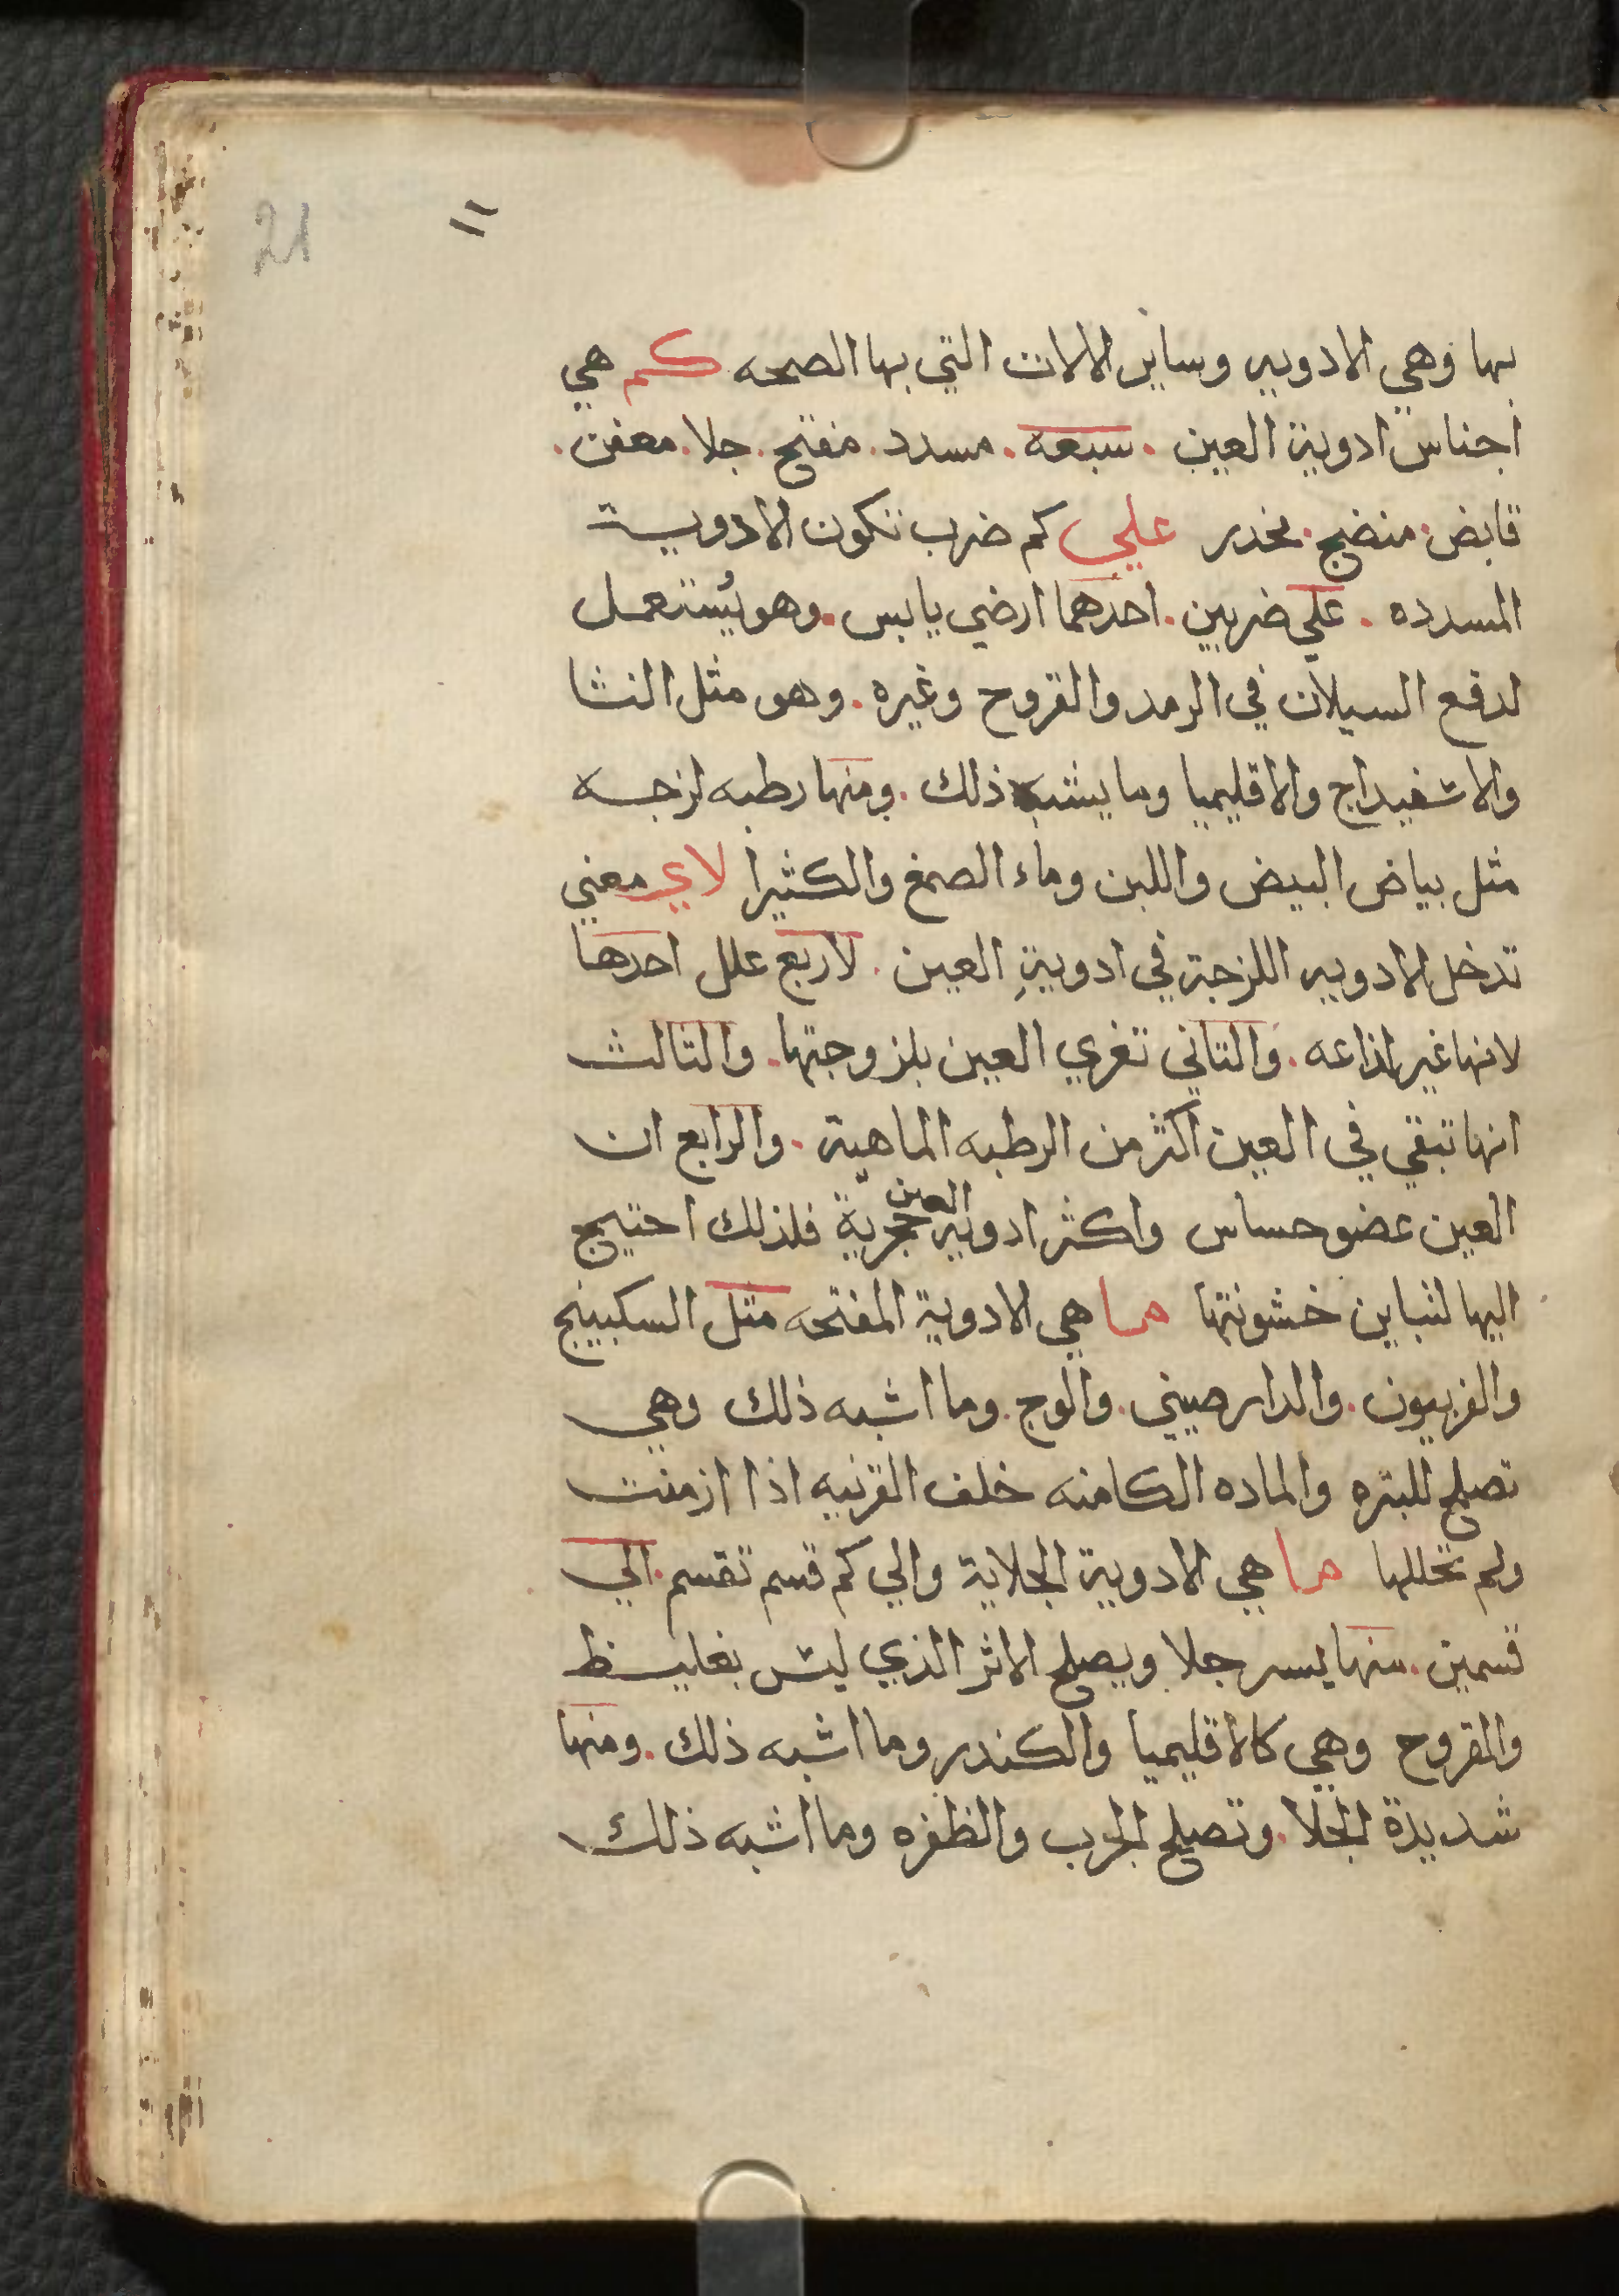 21
بها وهي الادويه وساير الالات التي بها الصحه كم هي
اجناس ادوية العين . سبعه . مسدد . مفتح . جلا . معفن .
قابض . منضج . مخدر علي كم ضرب تتكون الادويــة
المسدده . علي ضربين . احدهما ارضي يابس . وهو يُستعمل
لدفع السيلان في الرمد والقروح وغيره . وهو مثل النشا
والاسفيداج والاقليميا وما يشبه ذلك . ومنها رطبه لزجــه
مثل بياض البيض واللبن وماء الصمغ والكثيرا لاي معني
تدخل الادويه اللزجة في ادويةِ العين . لاربع علل احدها
لانها غير لذاعه . والتاني تغري العين بلزوجتها . والتالث
انها تبقي في العين اكثر من الرطبه الماهية . والرابع ان
العين عضو حساس واكثر ادويه العين حجرية فلذلك احتيج
اليها لتباين خشونتها ما هي الادوية المفتحه مثل السكبينج
والفربيون . والدارصيني . والوج . وما اشبه ذلك وهي
تصلح للبثره والماده الكامنه خلف القرنيه اذا ازمنت
ولم تحللها ما هي الادوية الجلاية والي كم قسم تقسم . الي
قسمين . منها يسير جلا ويصلح الاثر الذي ليس بغليــظ
والقروح وهي كالاقليميا والكندر وما اشبه ذلك . ومنها
شديدة الجلا . وتصلح الجرب والظفره وما اشبه ذلك